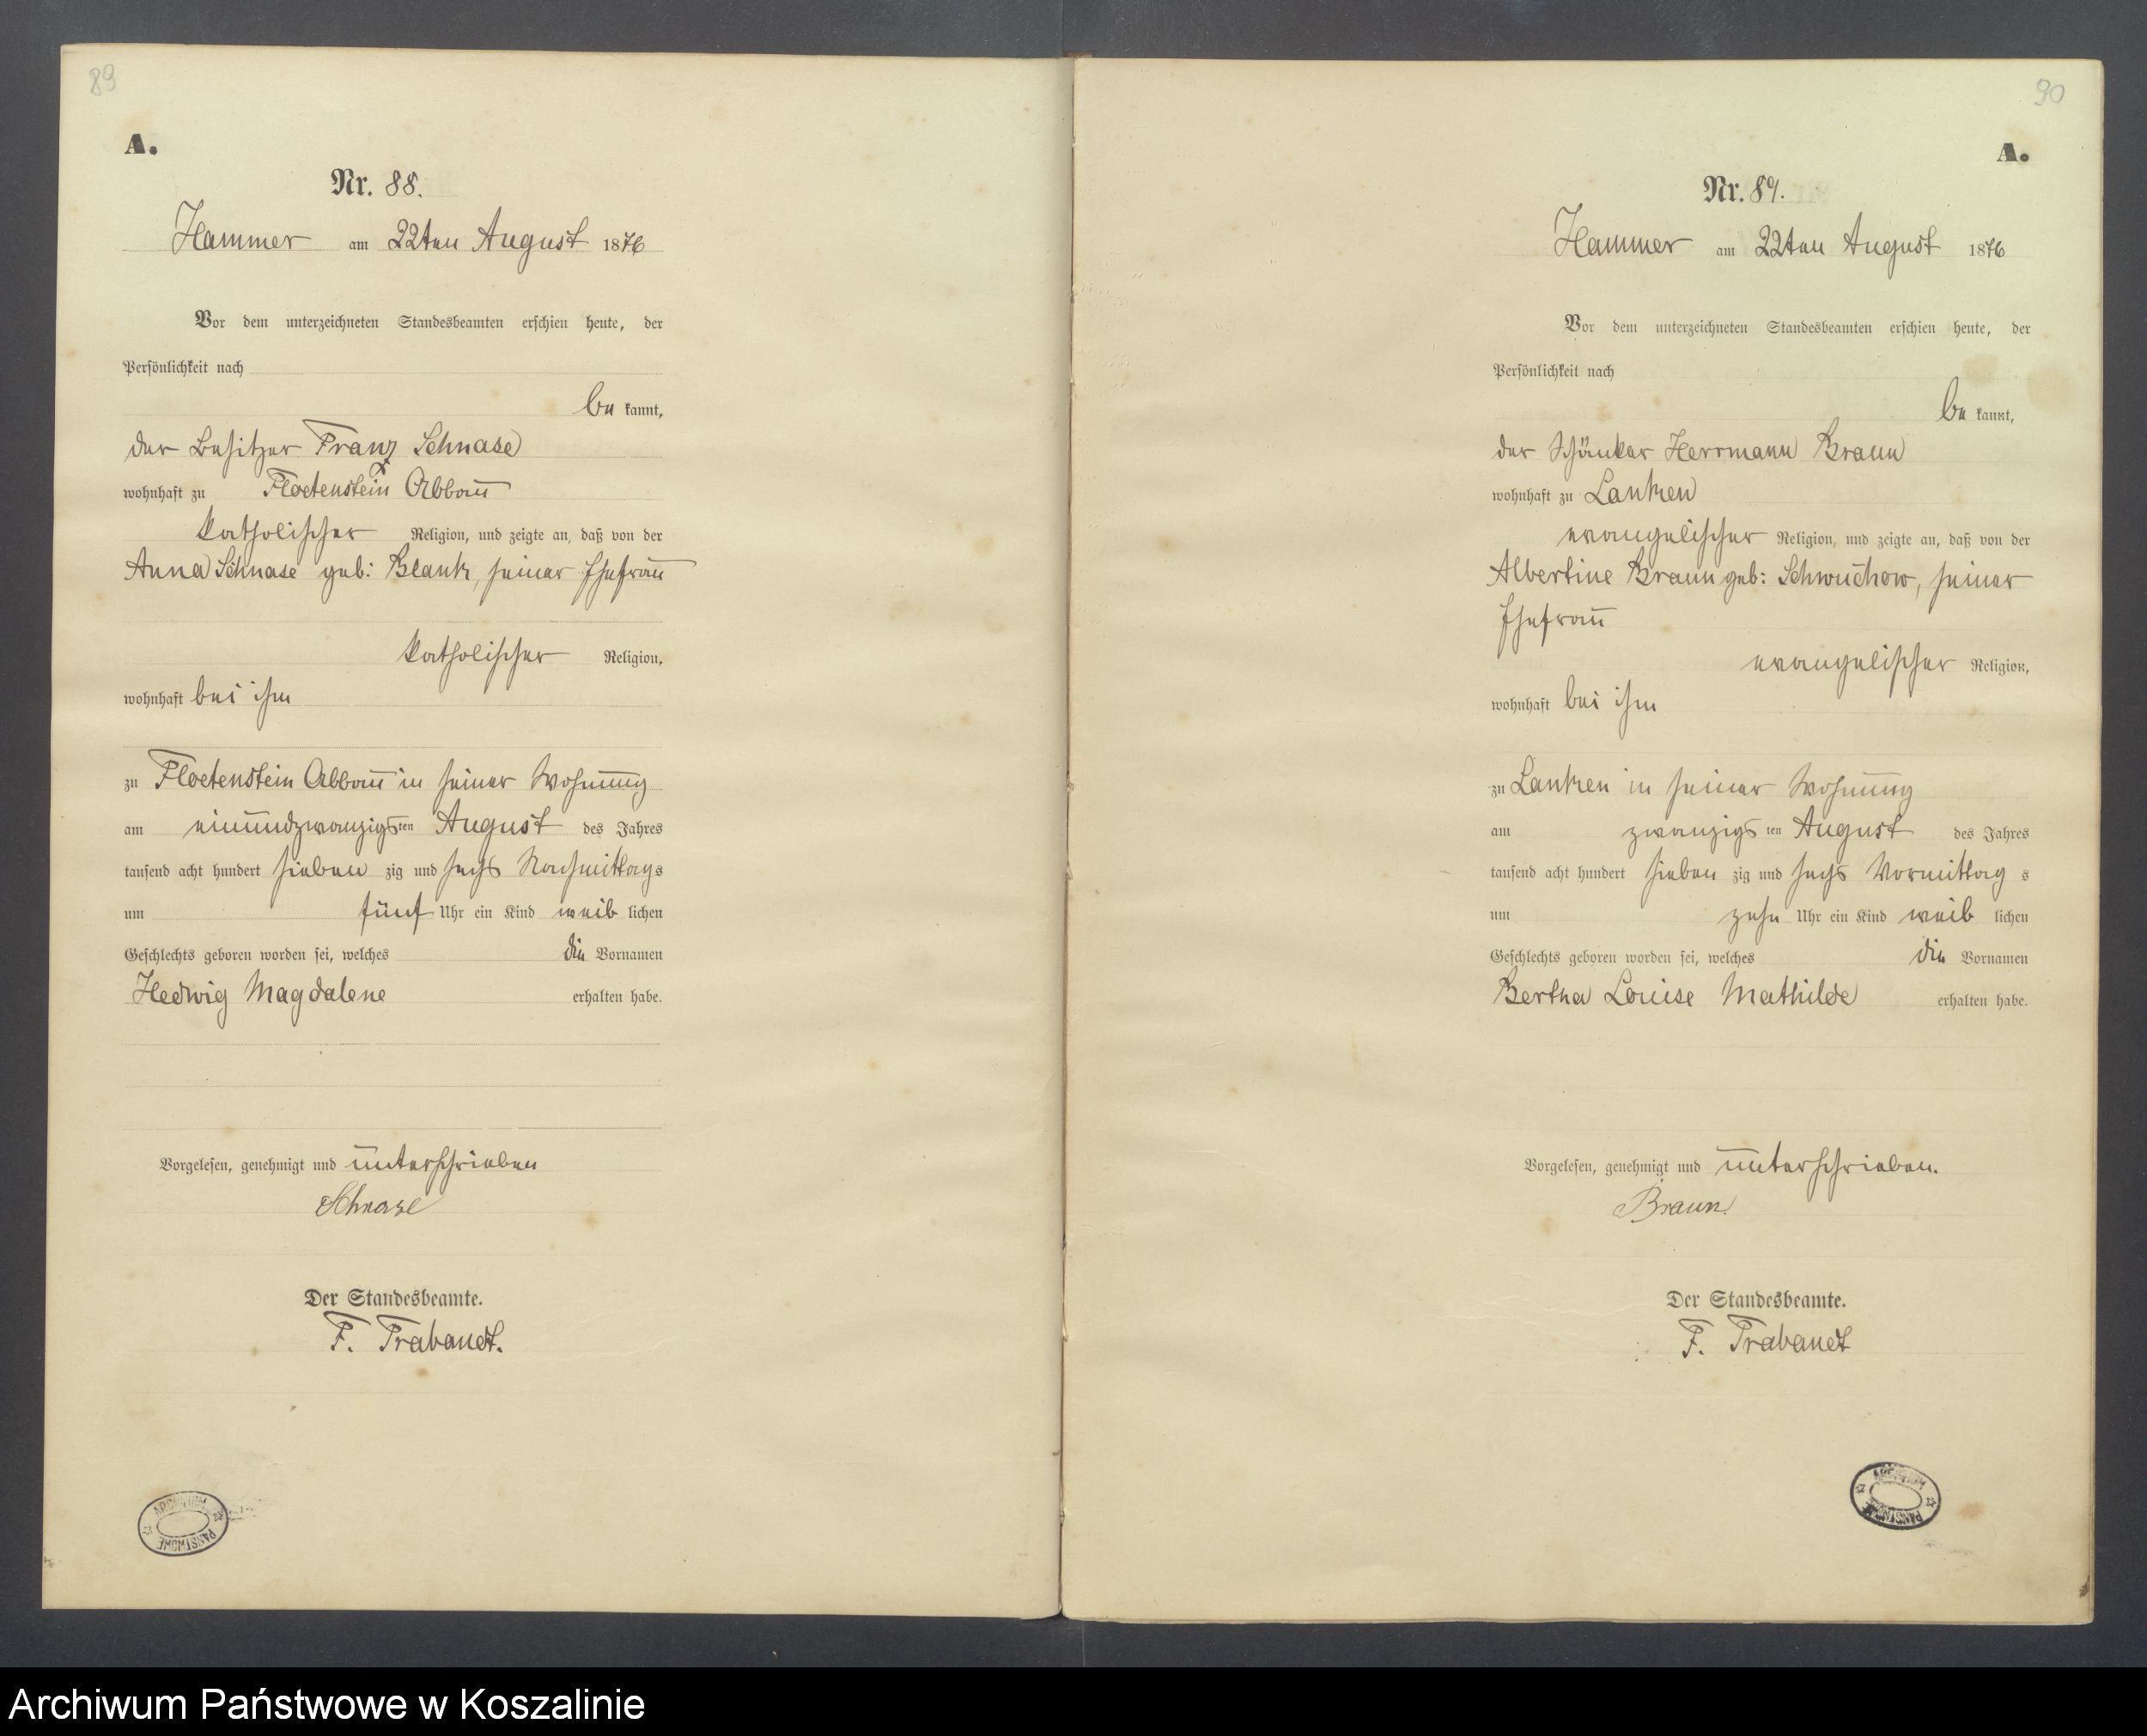 89
A.
Nr. 88.
Hammer am 22ten August 1876
Vor dem unterzeichneten Standesbeamten erschien heute, der
Persönlichkeit nach
be kannt,
der Besitzer Franz Schnase
wohnhaft zu Floetenstein Abbau
katholischer Religion, und zeigte an, daß von der
Anna Schnase geb: Blank, seiner Ehefrau
katholischer Religion,
wohnhaft bei ihm
zu Floetenstein Abbau in seiner Wohnung
am einundzwanzigsten August des Jahres
tausend acht hundert sieben zig und sechs Nachmittags
um fünf Uhr ein Kind weib lichen
Geschlechts geboren worden sei, welches die Vornamen
Hedwig Magdalene erhalten habe.
Vorgelesen, genehmigt und unterschrieben
Schnase
Der Standesbeamte.
F. Trabandt.
ARCHIWUM PAŃSTWOWE
90
A.
Nr. 89.
Hammer am 22ten August 1876
Vor dem unterzeichneten Standesbeamten erschien heute, der
Persönlichkeit nach
be kannt,
der Schänker Herrmann Braun
wohnhaft zu Lanken
evangelischer Religion, und zeigte an, daß von der
Albertine Braun geb: Schwuchow, seiner
Ehefrau
evangelischer Religion,
wohnhaft bei ihm
zu Lanken in seiner Wohnung
am zwanzigs ten August des Jahres
tausend acht hundert sieben zig und sechs Vormittag s
um zehn Uhr ein Kind weib lichen
Geschlechts geboren worden sei, welches die Vornamen
Bertha Louise Mathilde erhalten habe.
Vorgelesen, genehmigt und unterschrieben.
Braun
Der Standesbeamte.
F. Trabandt
ARCHIWUM PAŃSTWOWE
Archiwum Państwowe w Koszalinie